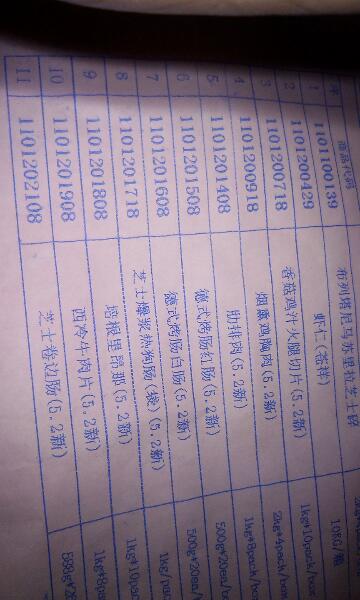 序 商品代码
1 1101100139 布列塔尼马苏里拉芝士碎 108G/箱
2 1101200429 虾仁(荟祥) 1kg*10pack/box
3 1101200718 香菇鸡汁火腿切片(5.2新) 2kg*4pack/box
4 1101200918 烟熏鸡胸肉(5.2新) 1kg*8pack/box
5 1101201408 肋排肉(5.2新) 500g*20ea/bo
6 1101201508 德式烤肠红肠(5.2新) 500g*20ea/
7 1101201608 德式烤肠白肠(5.2新) 1kg/
8 1101201718 芝士爆浆热狗肠(袋)(5.2新) 1kg*10p
9 1101201808 培根里昂那(5.2新) 1kg*8p
10 1101201908 西冷牛肉片(5.2新) 598g*2
11 1101202108 芝士卷边肠(5.2新)